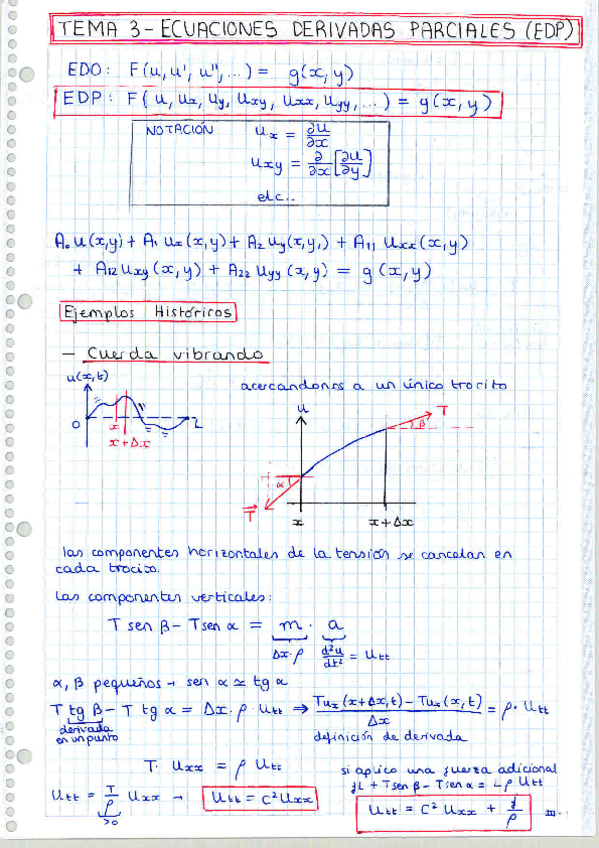 TEMA 3 - ECUACIONES DERIVADAS PARCIALES (EDP)
EDO: F(u, u', u'', ...) = g(x, y)
EDP: F( u, ux, uy, uxy, uxx, uyy, ...) = g(x, y)
NOTACIÓN
u x = ∂u/∂x
uxy = ∂/∂x [∂u/∂y]
etc...
A₀ u(x,y) + A₁ ux(x,y) + A₂ uy(x,y,) + A₁₁ uxx(x,y)
+ A₁₂ uxy(x,y) + A₂₂ uyy(x,y) = g(x,y)
Ejemplos Históricos
- Cuerda vibrando
u(x,t)
acercandonos a un único trocito
0 x L
x+Δx
u T β
α
T x x+Δx
las componentes horizontales de la tensión se cancelan en
cada trocito.
Las componentes verticales:
T sen β - T sen α = m · a
Δx·ρ d²u/dt² = utt
α, β pequeños → sen α ≃ tg α
T tg β - T tg α = Δx · ρ · utt ⇒ (Tux(x+Δx,t) - Tux(x,t))/Δx = ρ · utt
derivada
en un punto
definición de derivada
T · uxx = ρ utt
si aplico una fuerza adicional
fL + T sen β - T sen α = Lρ utt
utt = T/ρ uxx → utt = c² uxx
>0
utt = c² uxx + f/ρ